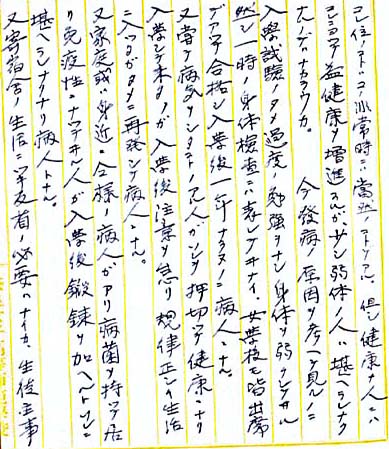 コレ位ノトコロ非常時ニハ當然ノコトデアル。但シ健康ナ人ニハ
コレニヨッテ益健康ヲ増進スルガ少シ弱体ノ人ハ堪ヘラレナク
ナルノデハナカラウカ。 今發病ノ原因ヲ考ヘテ見ルノニ
入學試驗ノタメ過度ノ勉強ヲナシ身体ヲ弱クシテヰル
然シ一時ノ身体検査ニハ表レテヰナイ。女學校モ皆出席
デアッテ合格シ入學後一年ナラズニ病人トナル。
又嘗テ病気ヲシタコトノアル人ガソレヲ押切ッテ健康ニナリ
入學シテ来タノガ入學後注意ヲ怠リ規律正シイ生活
ニ入ッタガタメニ再発シテ病人トナル。
又家庭或ハ身近ニ同様ノ病人ガアリ病菌ヲ持ッテ居
リ免疫性ニナッテヰル人ガ入學後鍛錬ヲ加ヘルトソレニ
堪ヘラレナクナリ病人トナル。
又寄宿舎ノ生活ニ 反省ノ必要ハナイカ。生徒主事